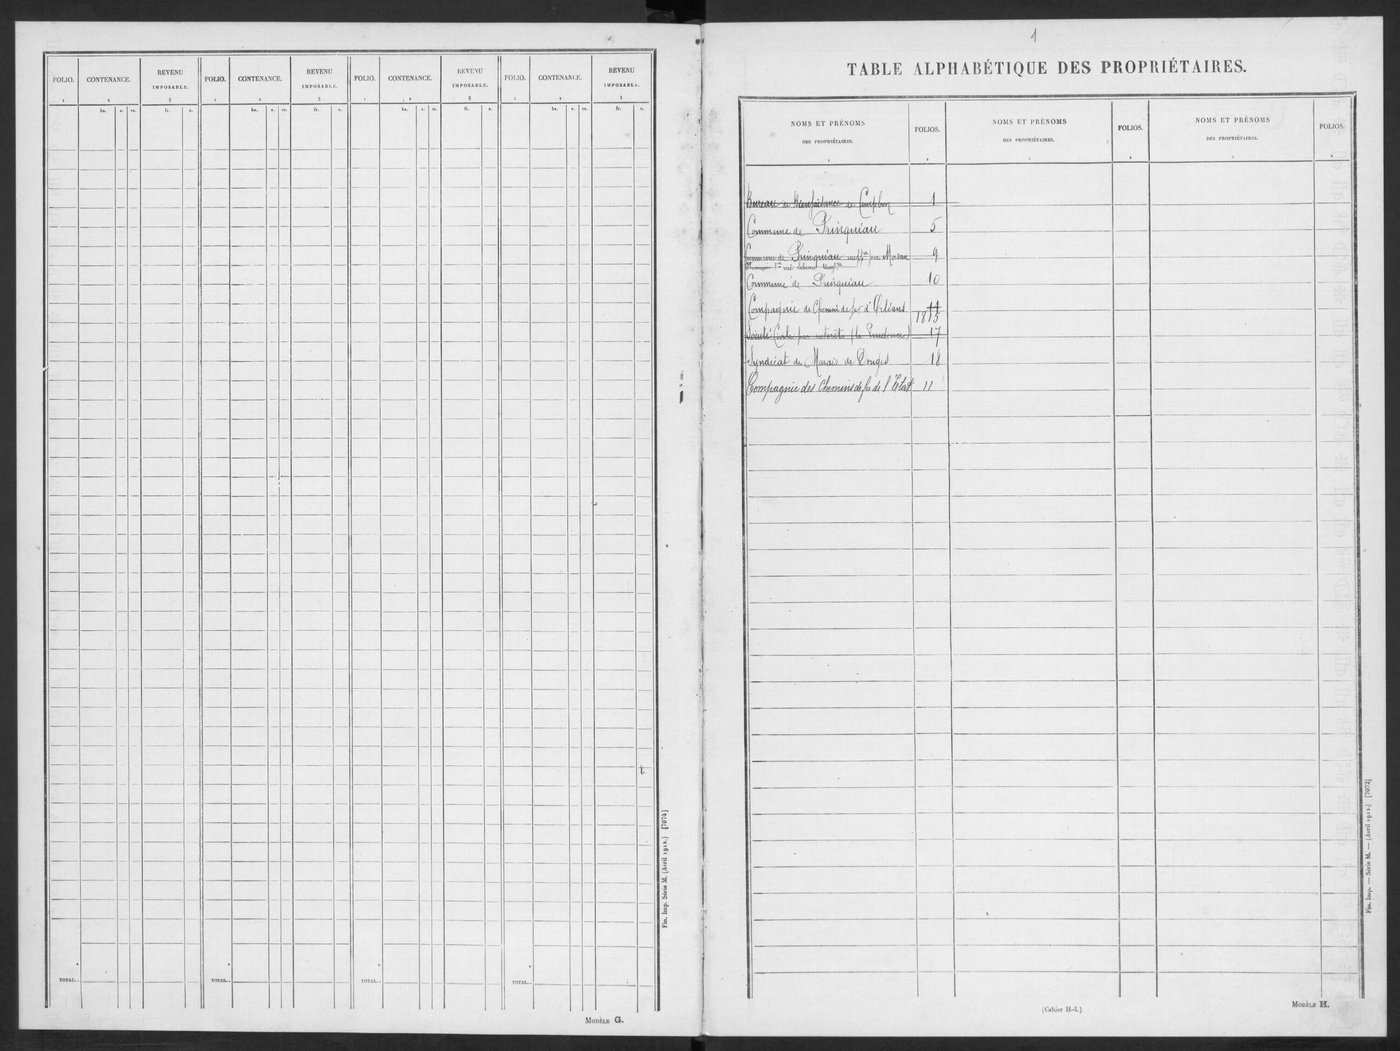 FOLIO. CONTENANCE. REVENU IMPOSABLE. FOLIO. CONTENANCE. REVENU IMPOSABLE. FOLIO. CONTENANCE. REVENU IMPOSABLE. FOLIO. CONTENANCE. REVENU IMPOSABLE.
1 2 3 1 2 3 1 2 3 1 2 3
ha. a. ca. fr. c. ha. a. ca. fr. c. ha. a. ca. fr. c. ha. a. ca. fr. c.
TOTAL.. TOTAL.. TOTAL.. TOTAL..
Fin. Imp. Série M. (Avril 1912.) [7074]
MODÈLE G.
1
TABLE ALPHABÉTIQUE DES PROPRIÉTAIRES.
NOMS ET PRÉNOMS DES PROPRIÉTAIRES. FOLIOS. NOMS ET PRÉNOMS DES PROPRIÉTAIRES. FOLIOS. NOMS ET PRÉNOMS DES PROPRIÉTAIRES. FOLIOS.
1 2 1 2 1 2
Bureau de Bienfaisance de Campbon 1
Commune de Prinquiau 5
Commune de Prinquiau par Moreau 9
Commune de Prinquiau 10
Compagnie de Chemins de fer d'Orléans 11
1815
Société Civile par intérêts (la Prudence) 17
Syndicat des Marais de Donges 18
Compagnie des Chemins de fer de l'Etat 11
Fin. Imp. — Série M. — (Avril 1912.) [7072]
(Cahier H-I.)
MODÈLE H.